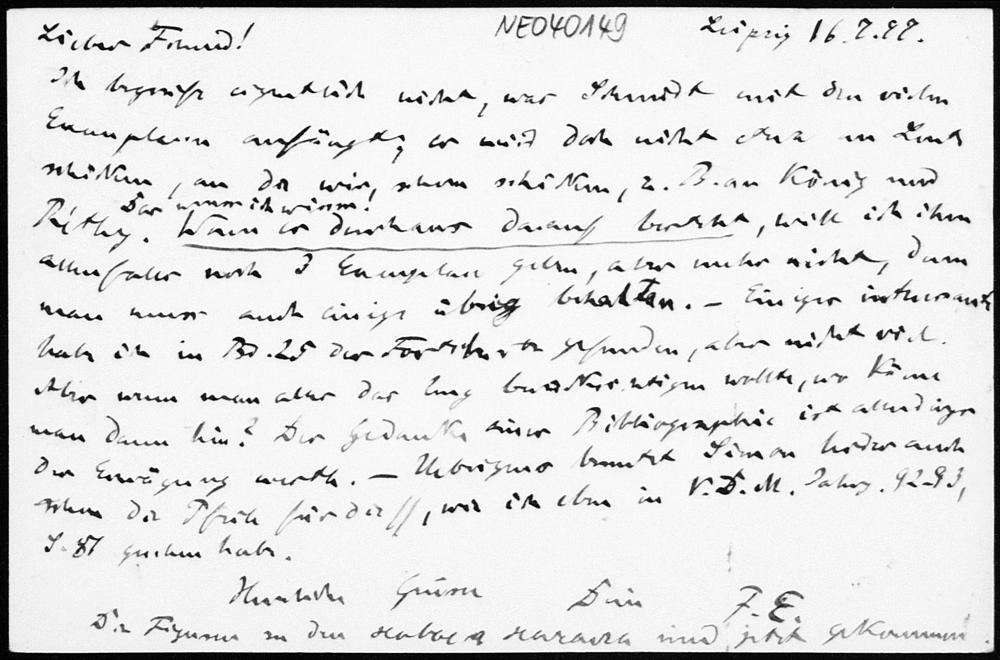 NEO40149
Leipzig 16.7.97.
Lieber Freund!
Ich begreife eigentlich nicht, was Schmidt mit den vielen
Exemplaren anfängt; er wird doch nicht etwa an Leute
schicken, an die wir, schon schicken, z. B. an König und
Réthy. Das muss ich wissen!
Wenn er durchaus darauf besteht, will ich ihm
allenfalls noch 3 Exemplare geben, aber mehr nicht, denn
man muss auch einige übrig behalten. — Einiges interessante
habe ich in Bd. 25 der Fortschritte gefunden, aber nicht viel.
Aber wenn man alles das Zeug berücksichtigen wollte, wo käme
man dann hin? Der Gedanke einer Bibliographie ist allerdings
der Erwägung werth. — Uebrigens benutzt Simon leider auch
schon die Pfeile für die //, wie ich eben in V.D.M. Jahrg. 92-93,
S. 81 gesehen habe.
Herzliche Grüsse Dein F. E.
Die Figuren zu den sind jetzt gekommen.